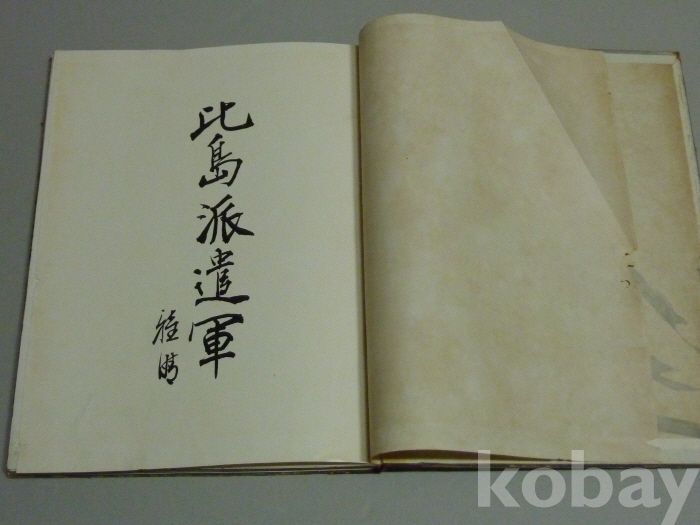 比島派遣軍
雅晴
kobay